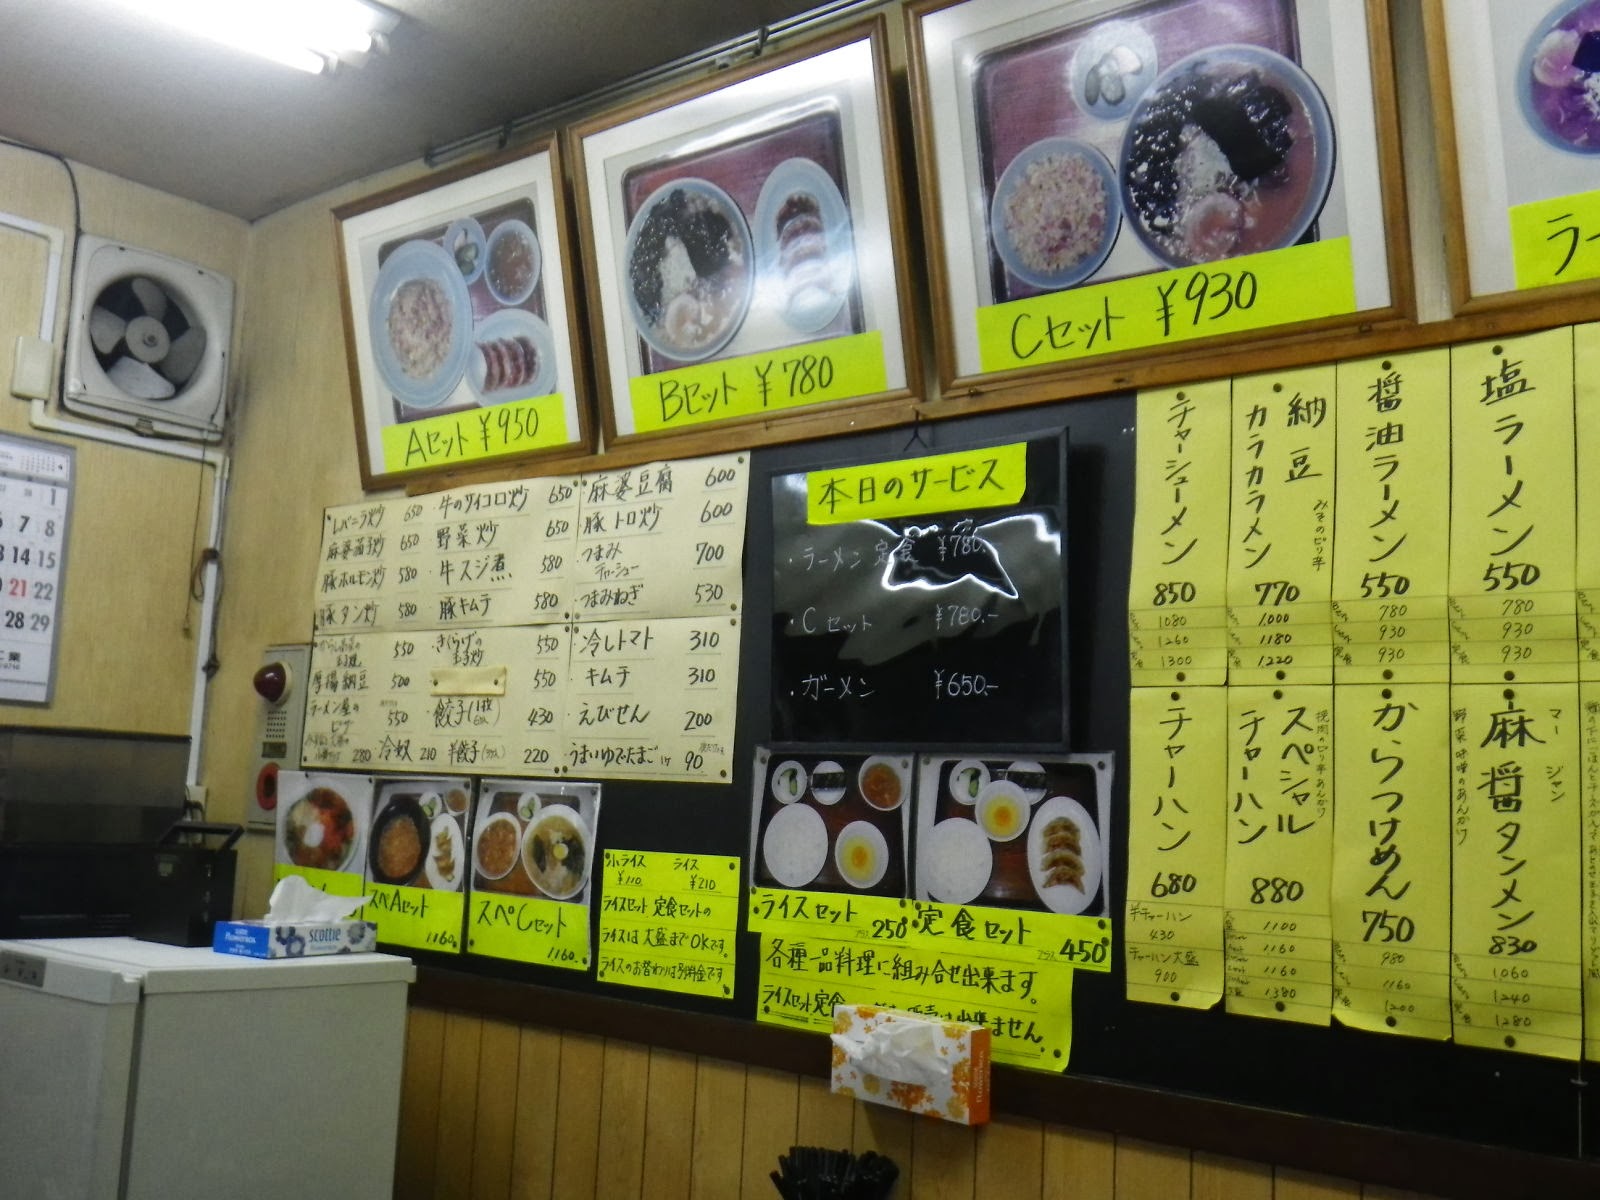 Aセット ¥950
Bセット ¥780
Cセット ¥930
ラー
レバニラ炒 650
麻婆茄子炒 650
豚ホルモン炒 580
豚タン炒 580
・牛のサイコロ炒 650
・野菜炒 650
・牛スジ煮 580
・豚キムチ 580
・麻婆豆腐 600
・豚トロ炒 600
・つまみチャーシュー 700
・つまみねぎ 530
550
厚揚納豆 500
ラーメン屋のピザ 550
280
・きくらげの玉子炒 550
550
・餃子 430
・冷奴 210
・半餃子 220
・冷しトマト 310
・キムチ 310
・えびせん 200
・うまいゆでたまご 1ケ 90
本日のサービス
・ラーメン定食 ¥780.-
・Cセット ¥780.-
・ガーメン ¥650.-
チャーシューメン
850
1080
1260
1300
納豆
カラカラメン
みそのピリ辛
770
1,000
1180
1,220
醤油ラーメン
550
780
930
930
塩ラーメン
550
780
930
930
チャーハン
680
半チャーハン
430
チャーハン大盛
900
スペシャル
チャーハン
880
1100
1160
1160
1380
からつけめん
750
980
1160
1200
マージャン
麻醤タンメン
野菜味噌のあんかけ
830
1060
1240
1280
スペAセット
1160.
スペCセット
1160.
小ライス ¥110
ライス ¥210
ライスセット 定食セットの
ライスは大盛までOKです。
ライスのお替わりは別料金です
ライスセット プラス 250
定食セット プラス 450
各種一品料理に組み合せ出来ます。
ライスセット定食
出来ません。
scottie
FLOWERBOX
1
6 7 8
13 14 15
20 21 22
28 29